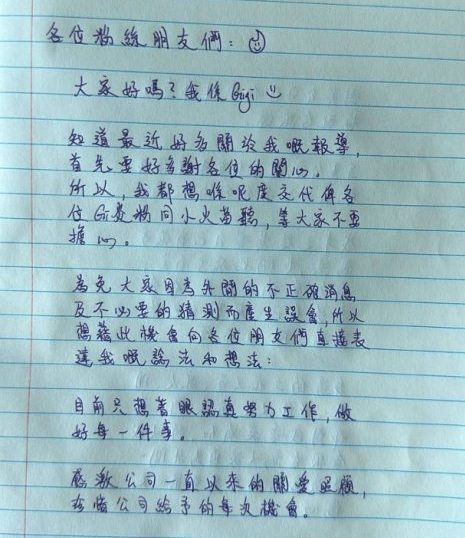 各位粉絲朋友們：
大家好嗎？我係Gigi
知道最近好多關於我嘅報導，
首先要好多謝各位的關心。
所以，我都想喺呢度交代俾各
位Gi炎粉同小火苗聽，等大家不要
擔心。
為免大家因為外間的不正確消息
及不必要的猜測而產生誤會，所以
想藉此機會向各位朋友們直接表
達我嘅諗法和想法：
目前只想着眼認真努力工作，做
好每一件事。
感激公司一直以來的關愛照顧，
珍惜公司給予的每次機會。